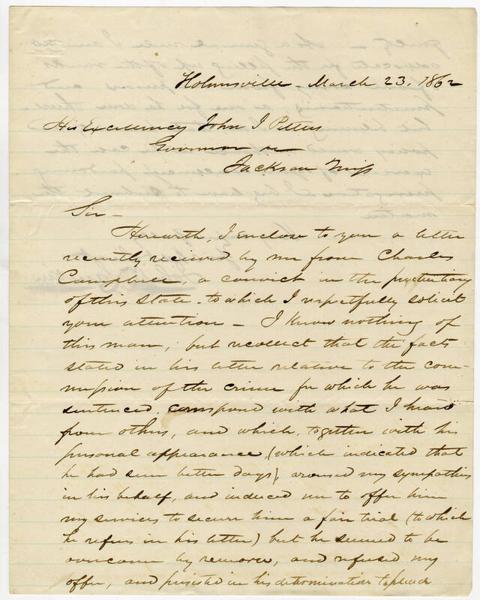 Holmesville - March 23. 1862
His Excellency John J Pettus
Governor &c
Jackson Miss
Sir -
Herewith, I enclose to you a letter
recently received by me from Charles
Campbell, a convict in the penitentiary
of this State - to which I respectfully solicit
your attention - I know nothing of
this man, but recollect that the facts
stated in his letter relative to the com-
mission of the crime for which he was
sentenced, correspond with what I heard
from others, and which, together with his
personal appearance, (which indicated that
he had seen better days), aroused my sympathies
in his behalf, and induced me to offer him
my services to secure him a fair trial (to which
he refers in his letter) but he seemed to be
overcome by remorse, and refused my
offer, and persisted in his determination to plead